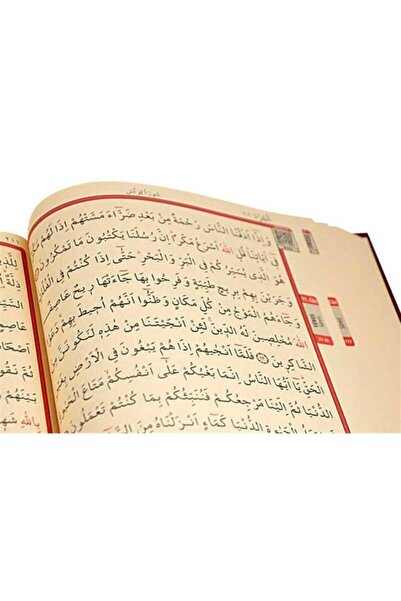 سُورَةُ يُونُسَ
وَاِذَٓا اَذَقْنَا النَّاسَ رَحْمَةً مِنْ بَعْدِ ضَرَّٓاءَ مَسَّتْهُمْ اِذَا لَهُمْ
فٓي اٰيَاتِنَا قُلِ اللّٰهُ اَسْرَعُ مَكْرًا اِنَّ رُسُلَنَا يَكْتُبُونَ مَا تَمْكُرُونَ
هُوَ الَّذٖي يُسَيِّرُكُمْ فِي الْبَرِّ وَالْبَحْرِ حَتّٰٓى اِذَا كُنْتُمْ فِي
وَجَرَيْنَ بِهِمْ بِرٖيحٍ طَيِّبَةٍ وَفَرِحُوا بِهَا جَٓاءَتْهَا رٖيحٌ
وَجَٓاءَهُمُ الْمَوْجُ مِنْ كُلِّ مَكَانٍ وَظَنُّٓوا اَنَّهُمْ اُحٖيطَ بِهِمْ
اللّٰهَ مُخْلِصٖينَ لَهُ الدّٖينَ لَئِنْ اَنْجَيْتَنَا مِنْ هٰذِهٖ
الشَّاكِرٖينَ فَلَمَّٓا اَنْجٰيهُمْ اِذَا هُمْ يَبْغُونَ فِي الْاَرْضِ
الْحَقِّ يَٓا اَيُّهَا النَّاسُ اِنَّمَا بَغْيُكُمْ عَلٰٓى اَنْفُسِكُمْ مَتَاعَ
الدُّنْيَا ثُمَّ اِلَيْنَا مَرْجِعُكُمْ فَنُنَبِّئُكُمْ بِمَا كُنْتُمْ تَعْمَلُونَ
الدُّنْيَا كَمَٓاءٍ اَنْزَلْنَاهُ مِنَ